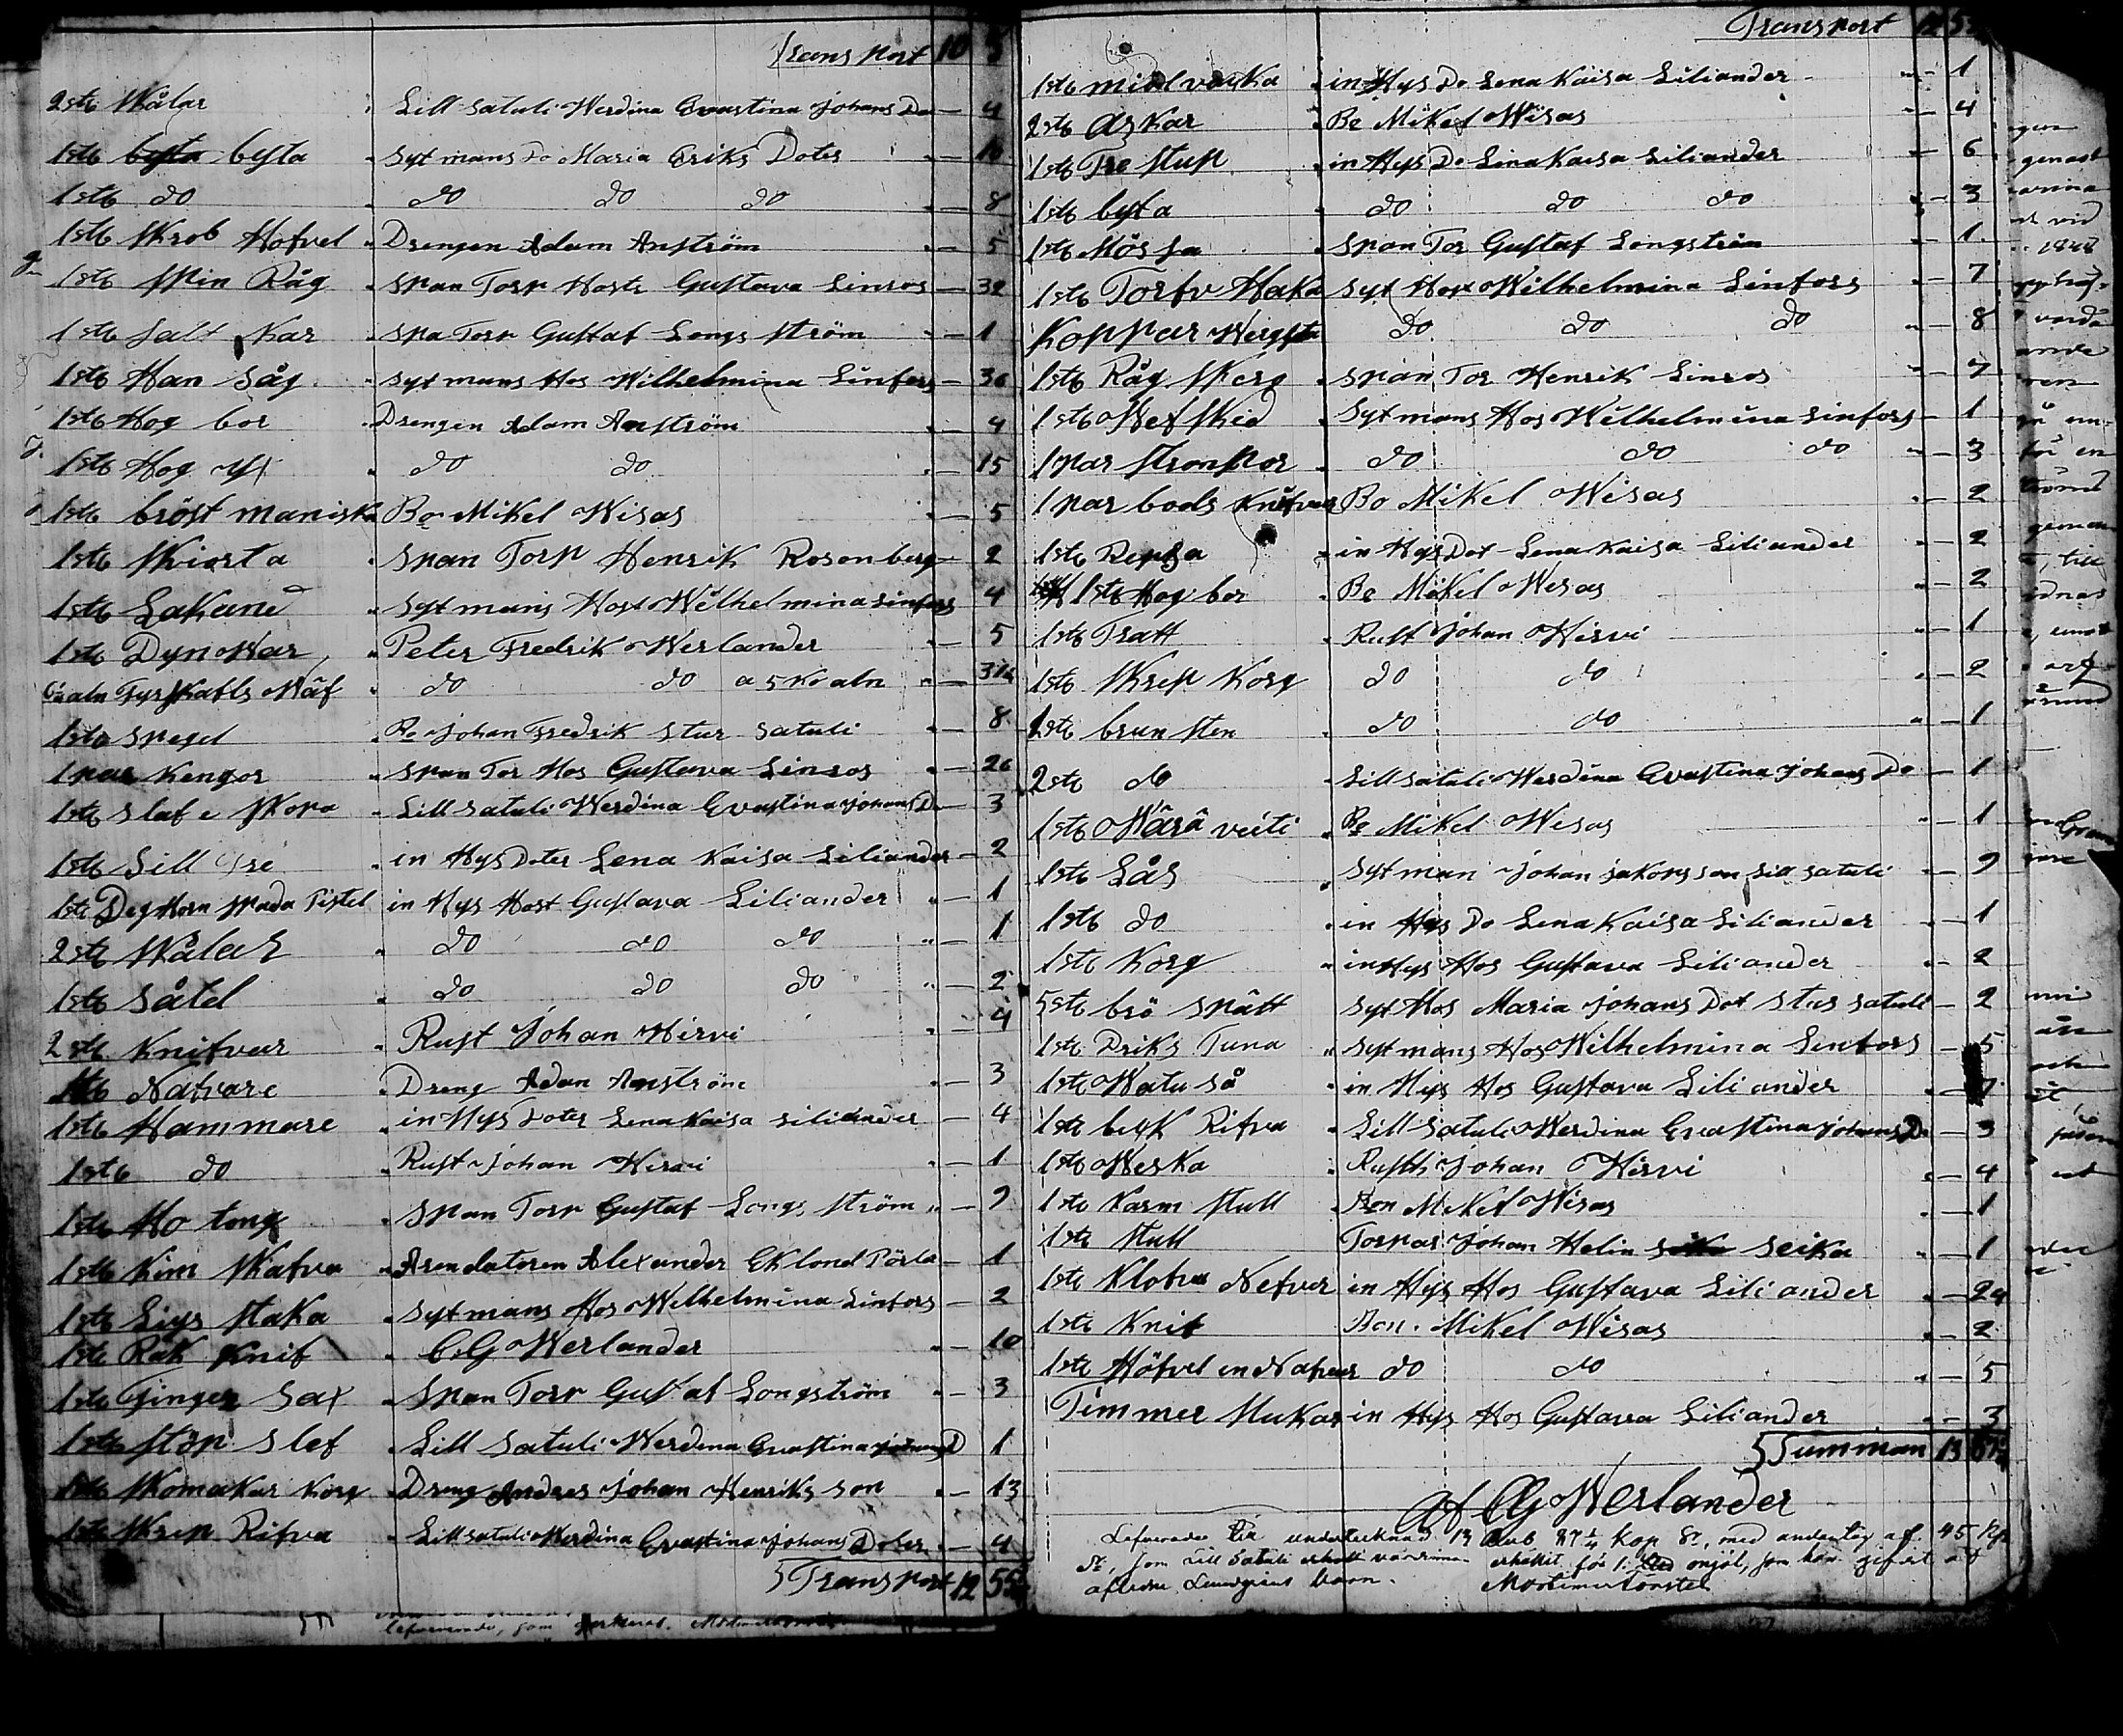 Transport 10 5
2 stb Skålar Lill Satuli Werdina Evastina Johans Do — 4
1 stb bytta bytta Sytmans Do Maria Eriks Doter — 10
1 stb do do do do — 8
1 stb Skrob Hofvel Drengen Adam Anström — 5
1 stb Skin Råg Span Torp Hosti Gustava Linros — 32
1 stb Salt Kar Spa Torp Gustaf Longs ström — 1
1 stb Han Såg Sytmans Hos Wilhelmina Linfors — 36
1 stb Hog bor Drengen Adam Anström — 4
1 stb Hog yx do do — 15
1 stb bröst maniska Bo Mikel Wisas — 5
1 stb Skiorta Span Torp Henrik Rosenberg — 2
1 stb Lakand Sytmans Host Wilhelmina Linfors 4
1 stb Dyn War Peter Fredrik Werlander — 5
aln Fyrskafts Wäf do do a 5 Ko aln —
1 stb Spegel Bo Johan Fredrik Stur Satuli — 8
1 par Kengor Span Tor Hos Gustava Linros — 26
1 stb Slaf e Skopa Lill Satuli Werdina Evastina Johans D — 3
1 stb Sill in Hys Doter Lena Kaisa Liliander — 2
1 stb Deg Horn Spada Pistel in Hys Host Gustava Liliander — 1
2 stb Skålar do do do — 1
1 stb Såtel do do do — 2
2 stb Knifvar Rust Johan Hirvi — 4
1 stb Nafvare Dreng Adam Anström — 3
1 stb Hammare in Hys Doter Lena Kaisa Liliander — 4
1 stb do Rust Johan Hirvi — 1
1 stb Ho tong Span Torp Gustaf Longs ström — 9
1 stb Kim Skafva Arendatoren Alexander Eklond Pörla — 1
1 stb Liys Staka Sytmans Hos Wilhelmina Linfors — 2
1 stb Rak Knif C. G Werlander — 10
1 stb Finger Sax Span Torp Gustaf Longström — 3
1 stb Stöp Slef Lill Satuli Werdina Evastina Johans D 1
1 stb Skomakar Korg Dreng Andres Johan Henriks son — 13
1 stb Skrep Rifva Lill Satuli Werdina Evastina Johans Doter — 4
Transport 12 55
Transport 12 55
1 stb in Hys Do Lena Kaisa Liliander — 1
2 stb Askar Bo Mikel Wisas — 4
1 stb Tre Stup in Hys Do Lena Kaisa Liliander — 6
1 stb byta do do do — 3
1 stb Mössa Span Tor Gustaf Longström — 1
1 stb Torfv Haka Syt Host Wilhelmina Linfors — 7
Koppar do do do — 8
1 stb Råg Skerg Span Tor Henrik Linros — 7
1 stb Wef Sked Sytmans Hos Wilhelmina Linfors — 1
1 par Stronpor do do do — 3
1 par bods Knifvar Bo Mikel Wisas — 2
1 stb Repsa in Hys Dot Lena Kaisa Liliander — 2
1 stb Hog bor Bo Mikel Wesas — 2
1 stb Tratt Rust Johan Hirvi — 1
1 stb Skrep Korg do do — 2
2 stb brun Sten do do — 1
2 stb do Lill Satuli Werdina Evastina Johans Do — 1
1 stb Wärä veiti Bo Mikel Wesas — 1
1 stb Lås Sytman Johan Jakops son Lill Satuli — 9
1 stb do in Hys Do Lena Kaisa Liliander — 1
1 stb Korg in Hys Hos Gustava Liliander — 2
5 stb brö Spätt Syt Hos Maria Johans Dot Stur Satuli — 2
1 stb Driks Tuna Sytmans Hos Wilhelmina Linfors — 5
1 stb Watu Så in Hys Hos Gustava Liliander — 7
1 stb byk Rifva Lill Satuli Werdina Evastina Johans D — 3
1 stb Weska Rusth Johan Hirvi — 4
1 stb Karm Stull Bon Mikel Wisas — 1
1 stb Stull Torpar Johan Helin Seika — 1
1 stb Klofva Nefver in Hys Hos Gustava Liliander — 24
1 stb Knif Bon. Mikel Wisas — 2
1 stb Höfvel en Nafvar do do — 5
Timmer Stukar in Hys Hos Gustava Liliander — 3
Summan 13
Af CG Werlander
Lefverade till undertecknad 13 Rub 87 1/4 Kop Sr, med undantag af 45 Kp
Sr, som Lill Satuli erhållit för 1 mjöl, som han gifvit åt
aflidne Lundgrens barn.